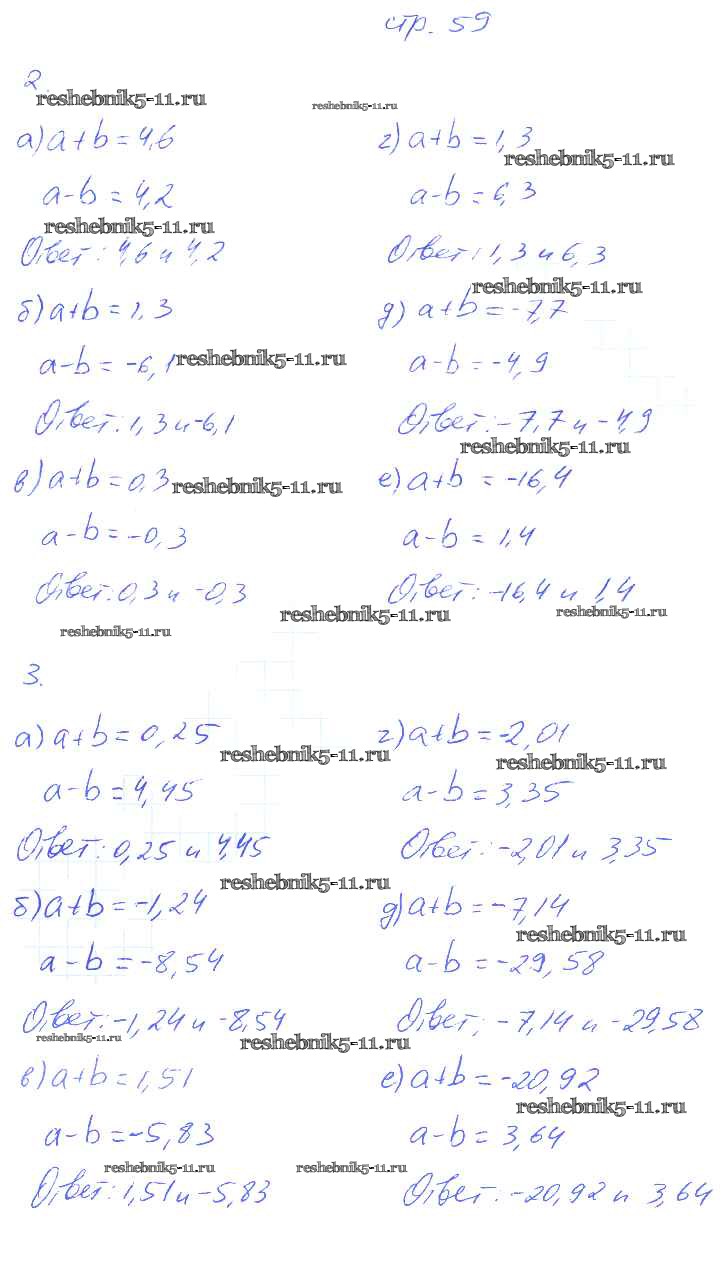 стр. 59
2.
reshebnik5-11.ru
reshebnik5-11.ru
а) a+b = 4,6
a-b = 4,2
reshebnik5-11.ru
Ответ: 4,6 и 4,2
б) a+b = 1,3
a-b = -6,1
reshebnik5-11.ru
Ответ: 1,3 и -6,1
в) a+b = 0,3
reshebnik5-11.ru
a-b = -0,3
Ответ: 0,3 и -0,3
reshebnik5-11.ru
г) a+b = 1,3
reshebnik5-11.ru
a-b = 6,3
Ответ: 1,3 и 6,3
reshebnik5-11.ru
д) a+b = -7,7
a-b = -4,9
Ответ: -7,7 и -4,9
reshebnik5-11.ru
е) a+b = -16,4
a-b = 1,4
Ответ: -16,4 и 1,4
reshebnik5-11.ru
reshebnik5-11.ru
3.
а) a+b = 0,25
reshebnik5-11.ru
a-b = 4,45
Ответ: 0,25 и 4,45
reshebnik5-11.ru
б) a+b = -1,24
a-b = -8,54
Ответ: -1,24 и -8,54
reshebnik5-11.ru
reshebnik5-11.ru
в) a+b = 1,51
a-b = -5,83
reshebnik5-11.ru
Ответ: 1,51 и -5,83
г) a+b = -2,01
reshebnik5-11.ru
a-b = 3,35
Ответ: -2,01 и 3,35
д) a+b = -7,14
reshebnik5-11.ru
a-b = -29,58
Ответ: -7,14 и -29,58
е) a+b = -20,92
reshebnik5-11.ru
a-b = 3,64
reshebnik5-11.ru
Ответ: -20,92 и 3,64